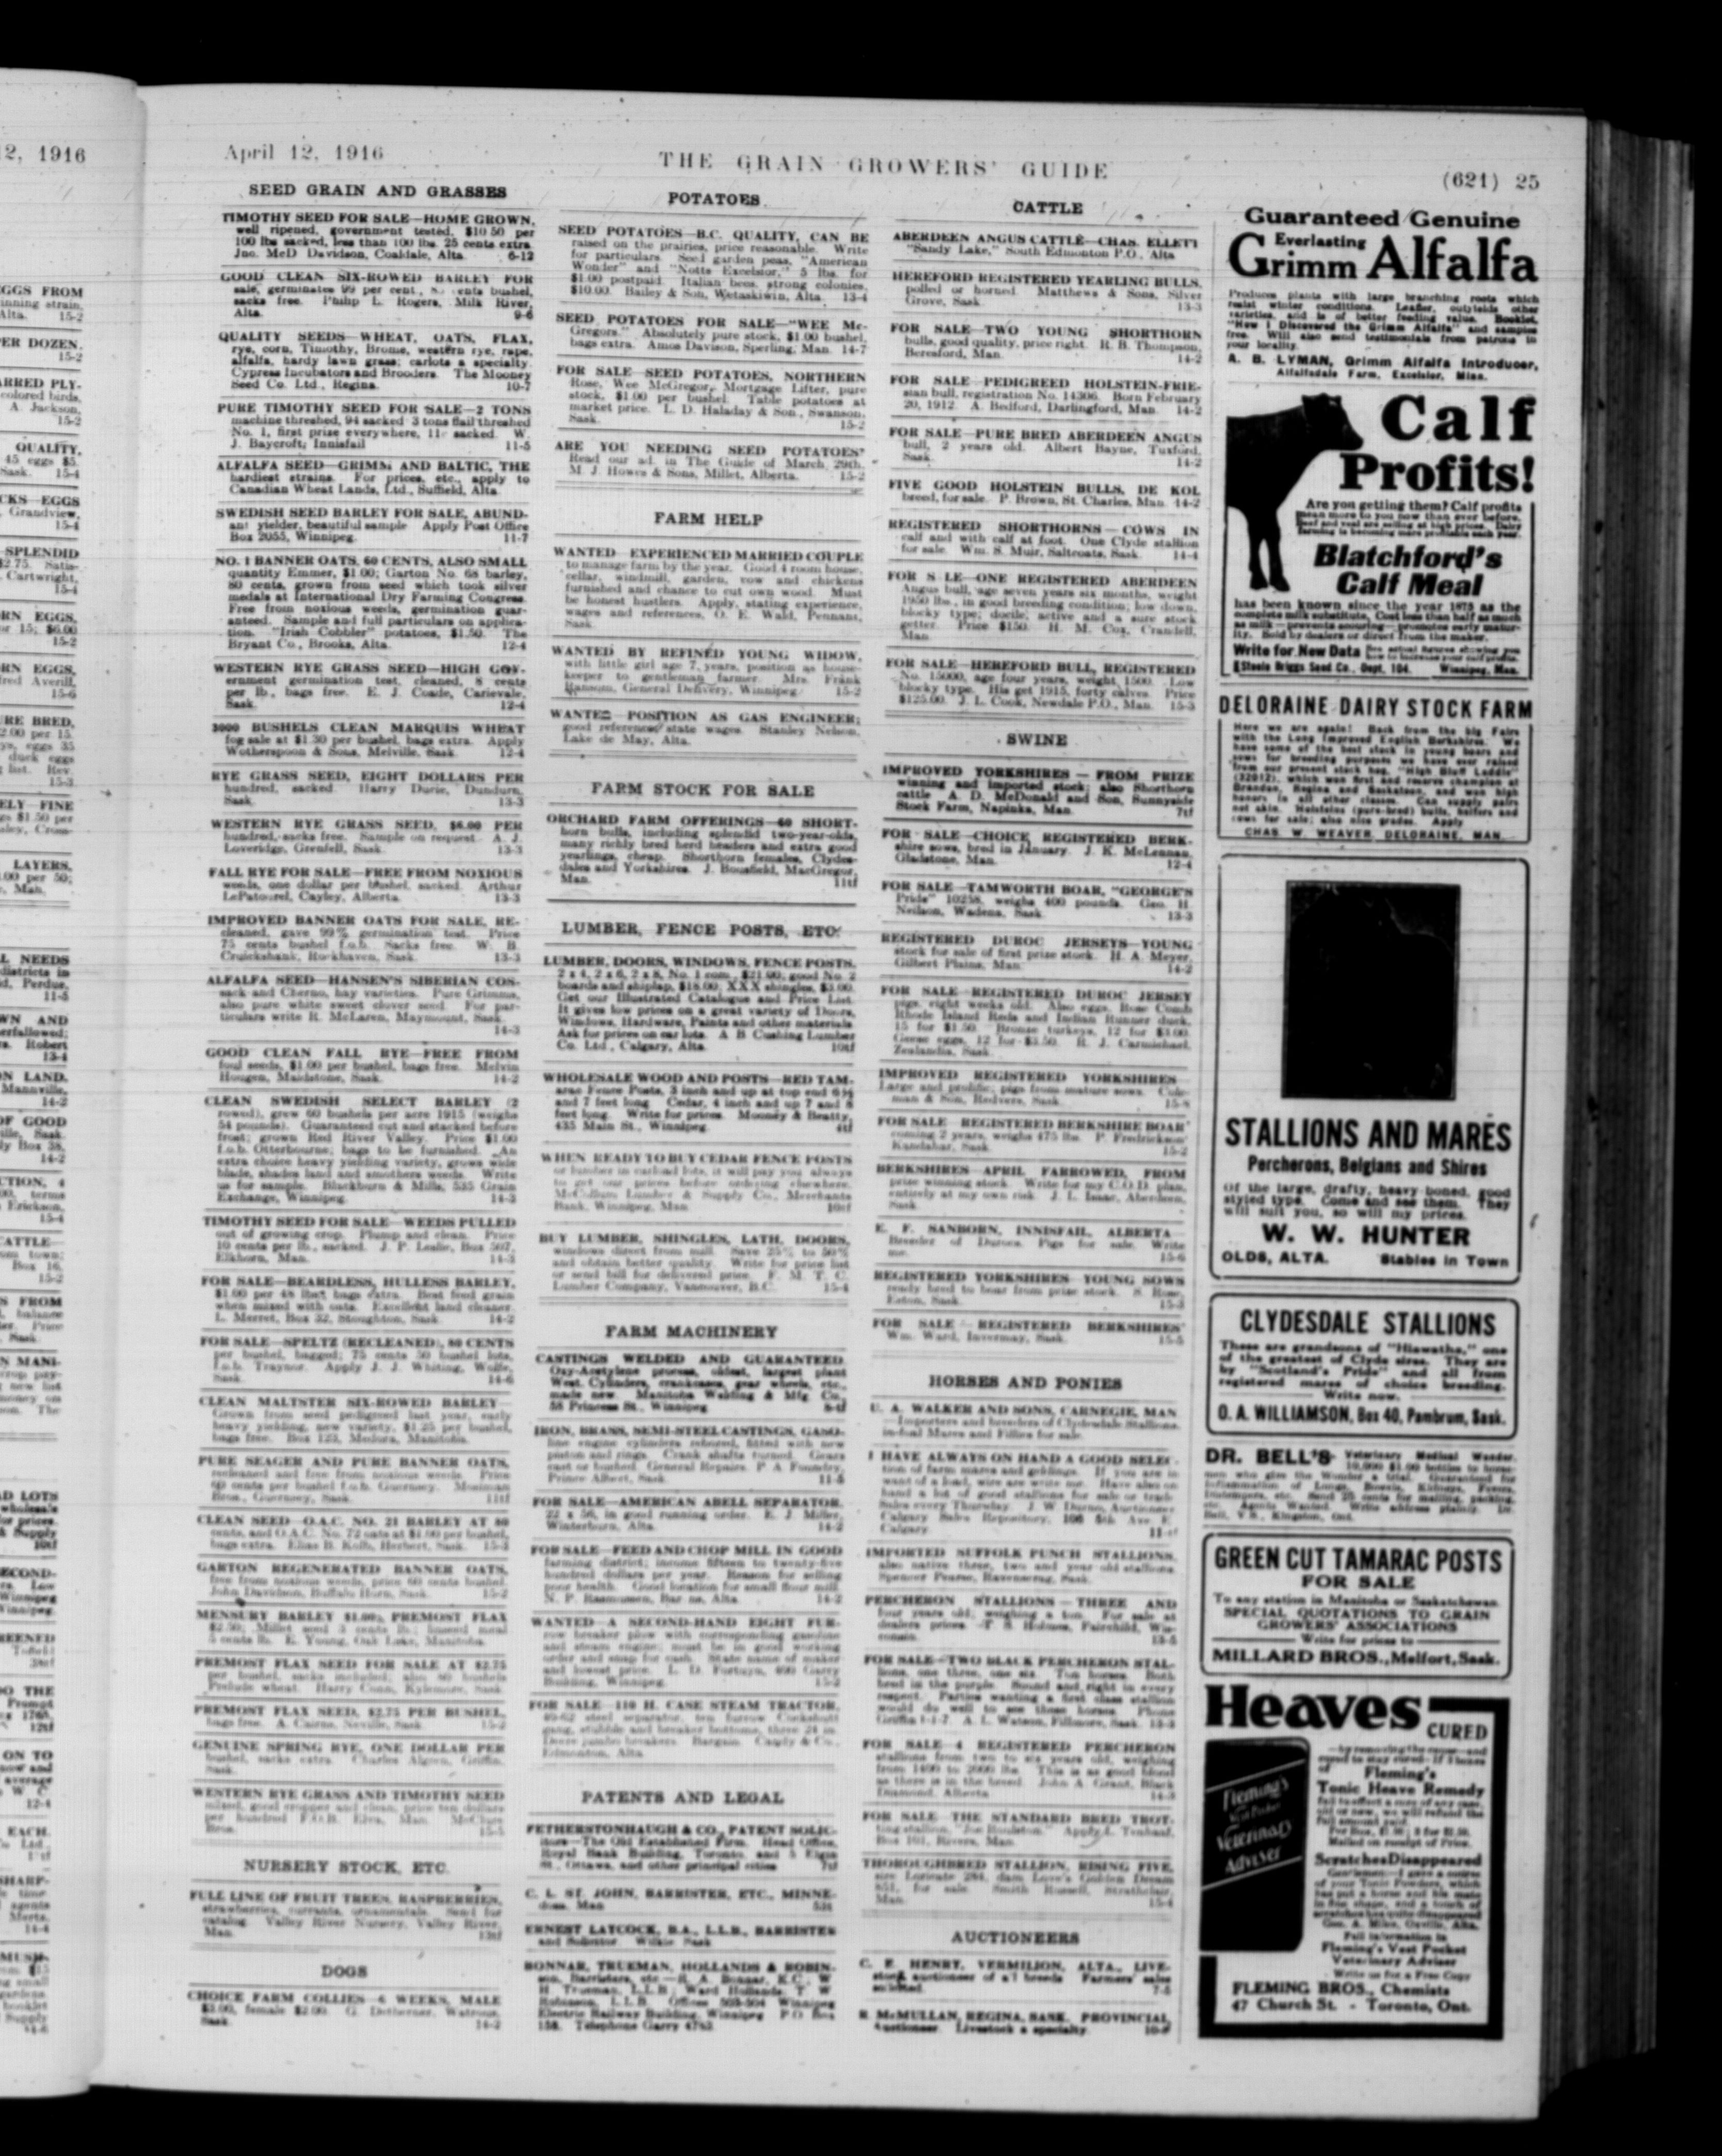 April 12, 1916
THE GRAIN GROWERS' GUIDE
(621) 25
SEED GRAIN AND GRASSES
TIMOTHY SEED FOR SALE—HOME GROWN,
well ripened, government tested, $10.50 per
100 lbs sacked, less than 100 lbs. 25 cents extra.
Jno. McD Davidson, Coaldale, Alta. 6-12
GOOD CLEAN SIX-ROWED BARLEY FOR
sale, germinates 99 per cent., cents bushel,
sacks free. Philip L. Rogers, Milk River,
Alta. 9-6
QUALITY SEEDS—WHEAT, OATS, FLAX,
rye, corn, Timothy, Brome, western rye, rape,
alfalfa, hardy lawn grass; carlots a specialty.
Cypress Incubators and Brooders. The Mooney
Seed Co. Ltd., Regina. 10-7
PURE TIMOTHY SEED FOR SALE—2 TONS
machine threshed, 94 sacked 3 tons flail threshed
No. 1, first prize everywhere, 11c sacked. W.
J. Baycroft, Innisfail 11-5
ALFALFA SEED—GRIMM AND BALTIC, THE
hardiest strains. For prices, etc., apply to
Canadian Wheat Lands, Ltd., Suffield, Alta.
SWEDISH SEED BARLEY FOR SALE, ABUND-
ant yielder, beautiful sample Apply Post Office
Box 2055, Winnipeg. 11-7
NO. 1 BANNER OATS, 60 CENTS, ALSO SMALL
quantity Emmer, $1.00; Garton No. 68 barley,
80 cents, grown from seed which took silver
medals at International Dry Farming Congress.
Free from noxious weeds, germination guar-
anteed. Sample and full particulars on applica-
tion. "Irish Cobbler" potatoes, $1.50. The
Bryant Co., Brooks, Alta. 12-4
WESTERN RYE GRASS SEED—HIGH GOV-
ernment germination test, cleaned, 8 cents
per lb., bags free. E. J. Coade, Carievale,
Sask. 12-4
3000 BUSHELS CLEAN MARQUIS WHEAT
for sale at $1.30 per bushel, bags extra. Apply
Wotherspoon & Sons, Melville, Sask. 12-4
RYE GRASS SEED, EIGHT DOLLARS PER
hundred, sacked. Harry Durie, Dundurn,
Sask. 13-3
WESTERN RYE GRASS SEED, $6.00 PER
hundred, sacks free. Sample on request. A. J.
Loveridge, Grenfell, Sask. 13-3
FALL RYE FOR SALE—FREE FROM NOXIOUS
weeds, one dollar per bushel, sacked. Arthur
LePatourel, Cayley, Alberta. 13-3
IMPROVED BANNER OATS FOR SALE, RE-
cleaned, gave 99% germination test. Price
75 cents bushel f.o.b. Sacks free. W. B.
Cruickshank, Rockhaven, Sask. 13-3
ALFALFA SEED—HANSEN'S SIBERIAN COS-
sack and Cherno, hay varieties. Pure Grimms,
also pure white sweet clover seed. For par-
ticulars write R. McLaren, Maymount, Sask.
14-3
GOOD CLEAN FALL RYE—FREE FROM
foul seeds, $1.00 per bushel, bags free. Melvin
Hougen, Maidstone, Sask. 14-2
CLEAN SWEDISH SELECT BARLEY (2
rowed), grew 60 bushels per acre 1915 (weighs
54 pounds). Guaranteed cut and stacked before
frost; grown Red River Valley. Price $1.00
f.o.b. Otterbourne; bags to be furnished. An
extra choice heavy yielding variety, grows wide
blade, shades land and smothers weeds. Write
us for sample. Blackburn & Mills, 535 Grain
Exchange, Winnipeg. 14-3
TIMOTHY SEED FOR SALE—WEEDS PULLED
out of growing crop. Plump and clean. Price
10 cents per lb., sacked. J. P. Leslie, Box 507,
Elkhorn, Man. 14-3
FOR SALE—BEARDLESS, HULLESS BARLEY,
$1.00 per 48 lbs., bags extra. Best feed grain
when mixed with oats. Excellent land cleaner.
L. Merret, Box 32, Stoughton, Sask. 14-2
FOR SALE—SPELTZ (RECLEANED), 80 CENTS
per bushel, bagged; 75 cents 50 bushel lots,
f.o.b. Traynor. Apply J. J. Whiting, Wolfe,
Sask. 14-6
CLEAN MALTSTER SIX-ROWED BARLEY—
Grown from seed pedigreed last year, early
heavy yielding, new variety, $1.25 per bushel,
bags free. Box 123, Medora, Manitoba.
PURE SEAGER AND PURE BANNER OATS,
recleaned and free from noxious weeds. Price
60 cents per bushel f.o.b. Guernsey.
Bros., Guernsey, Sask. 11tf
CLEAN SEED—O.A.C. NO. 21 BARLEY AT 80
cents, and O.A.C. No. 72 oats at $1.00 per bushel,
bags extra. Elias B. Kolb, Herbert, Sask. 15-3
GARTON REGENERATED BANNER OATS,
free from noxious weeds, price 60 cents bushel.
John Davidson, Buffalo Horn, Sask. 15-2
MENSURY BARLEY $1.00; PREMOST FLAX
$2.50; Millet seed 3 cents lb.;
5 cents lb. E. Young, Oak Lake, Manitoba.
PREMOST FLAX SEED FOR SALE AT $2.75
per bushel, sacks included; also 60 bushels
Prelude wheat. Harry Conn, Kylemore, Sask.
PREMOST FLAX SEED, $2.75 PER BUSHEL,
bags free. A. Cairns, Neville, Sask. 15-2
GENUINE SPRING RYE, ONE DOLLAR PER
bushel, sacks extra. Charles Griffin,
Sask.
WESTERN RYE GRASS AND TIMOTHY SEED
mixed, good cropper and clean, price ten dollars
per hundred F.O.B. Elva, Man. McClure
Bros. 15-5
NURSERY STOCK, ETC.
FULL LINE OF FRUIT TREES, RASPBERRIES,
strawberries, currants, ornamentals. Send for
catalog. Valley River Nursery, Valley River,
Man. 13tf
DOGS
CHOICE FARM COLLIES—6 WEEKS, MALE
$3.00, female $2.00. G. Watrous,
Sask. 14-2
POTATOES
SEED POTATOES—B.C. QUALITY, CAN BE
raised on the prairies, price reasonable. Write
for particulars. Seed garden peas, "American
Wonder" and "Notts Excelsior," 5 lbs. for
$1.00 postpaid. Italian bees, strong colonies,
$10.00. Bailey & Son, Wetaskiwin, Alta. 13-4
SEED POTATOES FOR SALE—"WEE Mc-
Gregors." Absolutely pure stock, $1.00 bushel,
bags extra. Amos Davison, Sperling, Man. 14-7
FOR SALE SEED POTATOES, NORTHERN
Rose, Wee McGregor, Mortgage Lifter, pure
stock, $1.00 per bushel. Table potatoes at
market price. L. D. Haladay & Son., Swanson,
Sask. 15-2
ARE YOU NEEDING SEED POTATOES?
Read our ad. in The Guide of March 29th.
M. J. Howes & Sons, Millet, Alberta. 15-2
FARM HELP
WANTED EXPERIENCED MARRIED COUPLE
to manage farm by the year. Good 4 room house,
cellar, windmill, garden, cow and chickens
furnished and chance to cut own wood. Must
be honest hustlers. Apply, stating experience,
wages and references, O. E. Wald, Pennant,
Sask.
WANTED BY REFINED YOUNG WIDOW,
with little girl age 7 years, position as house-
keeper to gentleman farmer. Mrs. Frank
Ransom, General Delivery, Winnipeg. 15-2
WANTED POSITION AS GAS ENGINEER;
good references; state wages. Stanley Nelson,
Lake de May, Alta.
FARM STOCK FOR SALE
ORCHARD FARM OFFERINGS—60 SHORT-
horn bulls, including splendid two-year-olds,
many richly bred herd headers and extra good
yearlings, cheap. Shorthorn females, Clydes-
dales and Yorkshires. J. Bousfield, MacGregor,
Man. 11tf
LUMBER, FENCE POSTS, ETC.
LUMBER, DOORS, WINDOWS, FENCE POSTS,
2 x 4, 2 x 6, 2 x 8, No. 1 com., $21.00; good No. 2
boards and shiplap, $18.00; XXX shingles, $3.00.
Get our Illustrated Catalogue and Price List.
It gives low prices on a great variety of Doors,
Windows, Hardware, Paints and other materials.
Ask for prices on car lots. A B Cushing Lumber
Co. Ltd., Calgary, Alta. 10tf
WHOLESALE WOOD AND POSTS—RED TAM-
arac Fence Posts, 3 inch and up at top end 6½
and 7 feet long. Cedar, 4 inch and up 7 and 8
feet long. Write for prices. Mooney & Beatty,
435 Main St., Winnipeg. 4tf
WHEN READY TO BUY CEDAR FENCE POSTS
or lumber in carload lots, it will pay you always
to get our prices before ordering elsewhere.
McCollum Lumber & Supply Co., Merchants
Bank, Winnipeg, Man. 10tf
BUY LUMBER, SHINGLES, LATH, DOORS,
windows direct from mill. Save 25% to 50%
and obtain better quality. Write for price list
or send bill for delivered price. F. M. T. C.
Lumber Company, Vancouver, B.C. 15-4
FARM MACHINERY
CASTINGS WELDED AND GUARANTEED
Oxy-Acetylene process, oldest, largest plant
West. Cylinders, crankcases, gear wheels, etc.,
made new. Manitoba Welding & Mfg. Co.,
58 Princess St., Winnipeg 8-tf
IRON, BRASS, SEMI-STEEL CASTINGS, GASO-
line engine cylinders rebored, fitted with new
piston and rings. Crank shafts turned. Gears
cast or bushed. General Repairs. P. A. Foundry,
Prince Albert, Sask. 11-5
FOR SALE—AMERICAN ABELL SEPARATOR,
22 x 56, in good running order. E. J. Miller,
Winterburn, Alta. 14-2
FOR SALE—FEED AND CHOP MILL IN GOOD
farming district; income fifteen to twenty-five
hundred dollars per year. Reason for selling
poor health. Good location for small flour mill.
N. P. Rasmussen, Alta. 14-2
WANTED—A SECOND-HAND EIGHT FUR-
row breaker plow with corresponding gasoline
and steam engine; must be in good working
order and snap for cash. State name of maker
and lowest price. L. D. Fortuyn, 490 Garry
Building, Winnipeg. 15-2
FOR SALE—110 H. CASE STEAM TRACTOR,
40-62 steel separator, ten furrow Cockshutt
gang, stubble and breaker bottoms, three 24 in.
Deere jumbo breakers. Bargain. & Co.,
Edmonton, Alta.
PATENTS AND LEGAL
FETHERSTONHAUGH & CO., PATENT SOLIC-
itors—The Old Established Firm. Head Office,
Royal Bank Building, Toronto, and 5 Elgin
St., Ottawa, and other principal cities. 7tf
C. L. ST. JOHN, BARRISTER, ETC., MINNE-
dosa, Man. 53t
ERNEST LAYCOCK, B.A., L.L.B., BARRISTER
and Solicitor. Wilkie, Sask.
BONNAR, TRUEMAN, HOLLANDS & ROBIN-
son, Barristers, etc.—R. A. Bonnar, K.C.; W.
H. Trueman, L.L.B.; Ward Hollands; T. W.
Robinson, L.L.B. Offices 503-504 Winnipeg
Electric Railway Building, Winnipeg. P.O. Box
158. Telephone Garry 4783
CATTLE
ABERDEEN ANGUS CATTLE—CHAS. ELLETT
"Sandy Lake," South Edmonton P.O., Alta
HEREFORD REGISTERED YEARLING BULLS,
polled or horned. Matthews & Sons, Silver
Grove, Sask. 13-3
FOR SALE—TWO YOUNG SHORTHORN
bulls, good quality, price right. R. B. Thompson,
Beresford, Man. 14-2
FOR SALE—PEDIGREED HOLSTEIN-FRIE-
sian bull, registration No. 14306. Born February
20, 1912. A. Bedford, Darlingford, Man. 14-2
FOR SALE—PURE BRED ABERDEEN ANGUS
bull, 2 years old. Albert Bayne, Tuxford,
Sask. 14-2
FIVE GOOD HOLSTEIN BULLS, DE KOL
breed, for sale. P. Brown, St. Charles, Man. 14-2
REGISTERED SHORTHORNS—COWS IN
calf and with calf at foot. One Clyde stallion
for sale. Wm. S. Muir, Saltcoats, Sask. 14-4
FOR S LE—ONE REGISTERED ABERDEEN
Angus bull, age seven years six months, weight
1950 lbs., in good breeding condition; low down,
blocky type; docile, active and a sure stock
getter. Price $150. H. M. Cox, Crandell,
Man.
FOR SALE—HEREFORD BULL, REGISTERED
No. 15000, age four years, weight 1500. Low
blocky type. His get 1915, forty calves. Price
$125.00. J. L. Cook, Newdale P.O., Man. 15-3
SWINE
IMPROVED YORKSHIRES — FROM PRIZE
winning and imported stock; also Shorthorn
cattle. A. D. McDonald and Son, Sunnyside
Stock Farm, Napinka, Man. 7tf
FOR SALE—CHOICE REGISTERED BERK-
shire sows, bred in January. J. K. McLennan,
Gladstone, Man. 12-4
FOR SALE—TAMWORTH BOAR, "GEORGE'S
Pride" 10258, weighs 400 pounds. Geo. H.
Neilson, Wadena, Sask. 13-3
REGISTERED DUROC JERSEYS—YOUNG
stock for sale of first prize stock. H. A. Meyer,
Gilbert Plains, Man. 14-2
FOR SALE—REGISTERED DUROC JERSEY
pigs, eight weeks old. Also eggs. Rose Comb
Rhode Island Reds and Indian Runner duck,
15 for $1.50. Bronze turkeys, 12 for $3.00.
Geese eggs, 12 for $3.50. R. J. Carmichael,
Zealandia, Sask.
IMPROVED REGISTERED YORKSHIRES—
Large and prolific; pigs from mature sows. Cole-
man & Son, Redvers, Sask. 15-8
FOR SALE—REGISTERED BERKSHIRE BOAR
coming 2 years, weighs 475 lbs. P. Fredrickson
Kandahar, Sask. 15-2
BERKSHIRES—APRIL FARROWED, FROM
prize winning stock. Write for my C.O.D. plan,
entirely at my own risk. J. L. Isaac, Aberdeen,
Sask.
E. F. SANBORN, INNISFAIL, ALBERTA
Breeder of Durocs. Pigs for sale. Write
me. 15-6
REGISTERED YORKSHIRES—YOUNG SOWS
ready bred to boar from prize stock. S. Rose,
Eston, Sask. 15-3
FOR SALE — REGISTERED BERKSHIRES
Wm. Ward, Invermay, Sask. 15-5
HORSES AND PONIES
U. A. WALKER AND SONS, CARNEGIE, MAN
—Importers and breeders of Clydesdale Stallions,
in-foal Mares and Fillies for sale.
I HAVE ALWAYS ON HAND A GOOD SELEC-
tion of farm mares and geldings. If you are in
want of a load, wire or write me. Have also on
hand a lot of good stallions for sale or trade
Sales every Thursday. J. W. Durno, Auctioneer
Calgary Sales Repository, 106 5th Ave. E
Calgary. 11-tf
IMPORTED SUFFOLK PUNCH STALLIONS,
also native three, two and year old stallions.
Spencer Pearse, Ravenscrag, Sask.
PERCHERON STALLIONS — THREE AND
four years old; weighing a ton. For sale at
dealers prices. T. S. Holmes, Fairchild, Wis-
consin. 13-5
FOR SALE—TWO BLACK PERCHERON STAL-
lions, one three, one six. Ton horses. Both
bred in the purple. Sound and right in every
respect. Parties wanting a first class stallion
would do well to see these horses. Phone
Griffin 1-1-7. A. L. Watson, Fillmore, Sask. 13-3
FOR SALE—4 REGISTERED PERCHERON
stallions from two to six years old, weighing
from 1400 to 2000 lbs. This is as good blood
as there is in the breed. John A. Grant, Black
Diamond, Alberta 14-3
FOR SALE—THE STANDARD BRED TROT-
ting stallion, "Joe Apply L.
Box 101, Rivers, Man.
THOROUGHBRED STALLION, RISING FIVE,
sire Loricate 284, dam Love's Golden Dream
851, for sale. Smith Russell, Strathclair,
Man. 15-4
AUCTIONEERS
C. E. HENRY, VERMILION, ALTA., LIVE-
stock auctioneer of all breeds. Farmers' sales
solicited. 7-5
R McMULLAN, REGINA, SASK. PROVINCIAL
Auctioneer. Livestock a specialty.
Guaranteed Genuine
Everlasting
Grimm Alfalfa
Produces plants with large branching roots which
resist winter conditions. Leafier, outyields other
varieties, and is of better feeding value. Booklet,
"How I Discovered the Grimm Alfalfa" and samples
free. Will also send testimonials from patrons in
your locality.
A. B. LYMAN, Grimm Alfalfa Introducer,
Alfalfadale Farm, Excelsior, Minn.
Calf
Profits!
Are you getting them? Calf profits
mean more to you now than ever before.
Beef and veal are selling at high prices. Dairy
farming is becoming more profitable each year.
Blatchford's
Calf Meal
has been known since the year 1875 as the
complete milk substitute. Cost less than half as much
as milk—prevents scouring—promotes early matur-
ity. Sold by dealers or direct from the maker.
Write for New Data See actual figures showing you
how to increase your calf profits.
Steele Briggs Seed Co., Dept. 104. Winnipeg, Man.
DELORAINE DAIRY STOCK FARM
Here we are again! Back from the big Fairs
with the Long Improved English Berkshires. We
have some of the best stock in young boars and
sows for breeding purposes we have ever raised
from our present stock hog, "High Bluff Laddie"
(32012), which won first and reserve champion at
Brandon, Regina and Saskatoon, and won high
honors in all other classes. Can supply pairs
not akin. Holsteins (pure-bred) bulls, heifers and
cows for sale; also nice grades. Apply
CHAS. W. WEAVER, DELORAINE, MAN.
STALLIONS AND MARES
Percherons, Belgians and Shires
Of the large, drafty, heavy boned, good
styled type. Come and see them. They
will suit you, so will my prices.
W. W. HUNTER
OLDS, ALTA. Stables in Town
CLYDESDALE STALLIONS
These are grandsons of "Hiawatha," one
of the greatest of Clyde sires. They are
by "Scotland's Pride" and all from
registered mares of choice breeding.
Write now.
O. A. WILLIAMSON, Box 40, Pambrum, Sask.
DR. BELL'S Veterinary Medical Wonder.
10,000 $1.00 bottles to horse-
men who give the Wonder a trial. Guaranteed for
Inflammation of Lungs, Bowels, Kidneys, Fevers,
Distempers, etc. Send 25 cents for mailing, packing,
etc. Agents Wanted. Write address plainly. Dr.
Bell, V.S., Kingston, Ont.
GREEN CUT TAMARAC POSTS
FOR SALE
To any station in Manitoba or Saskatchewan.
SPECIAL QUOTATIONS TO GRAIN
GROWERS' ASSOCIATIONS
Write for prices to
MILLARD BROS., Melfort, Sask.
Heaves
CURED
—by removing the cause—and
cured to stay cured—if 3 boxes
of Fleming's
Tonic Heave Remedy
fail to effect a cure of any case,
old or new, we will refund the
full amount paid.
Per Box, $1.00; 3 for $2.50.
Mailed on receipt of Price.
Scratches Disappeared
Gentlemen—I gave a course
of your Tonic Powders, which
has put a horse and his mate
in fine shape, and a touch of
scratches has quite disappeared
Geo. A. Miles, Oxville, Alta.
Full information in
Fleming's Vest Pocket
Veterinary Adviser
Write us for a Free Copy
FLEMING BROS., Chemists
47 Church St. - Toronto, Ont.
Fleming's
Vest Pocket
Veterinary
Adviser